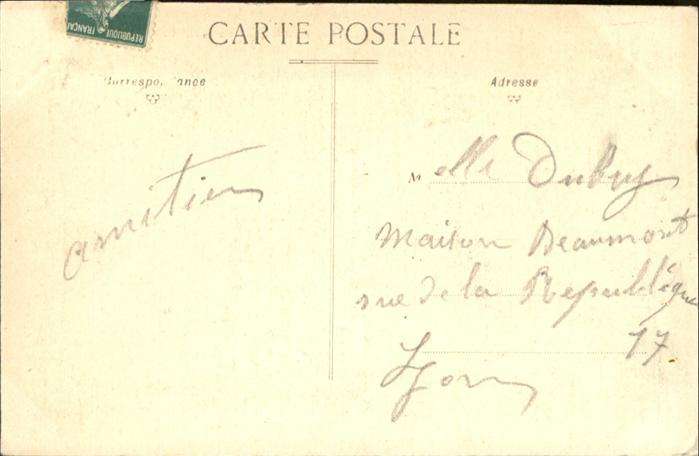 REPUBLIQUE FRANÇAI
CARTE POSTALE
Correspondance
Adresse
amitiés
Melle Dubuy
Maison Beaumont
rue de la République
17
Lyon